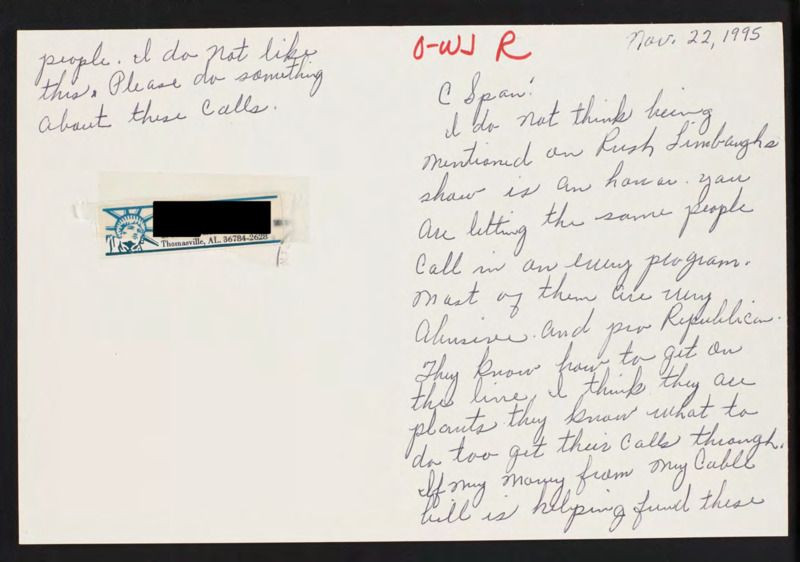 O-WJ R
Nov. 22, 1995
C Span!
I do not think being
mentioned on Rush Limbaughs
show is an honor. you
are letting the same people
call in on every program.
most of them are very
Abusive. and pro Republican.
They know how to get on
the line, I think they are
plants they know what to
do too get their calls through.
If my money from my Cable
bill is helping fund these
people. I do not like
this. Please do something
about these calls.
Thomasville, AL. 36784-2628